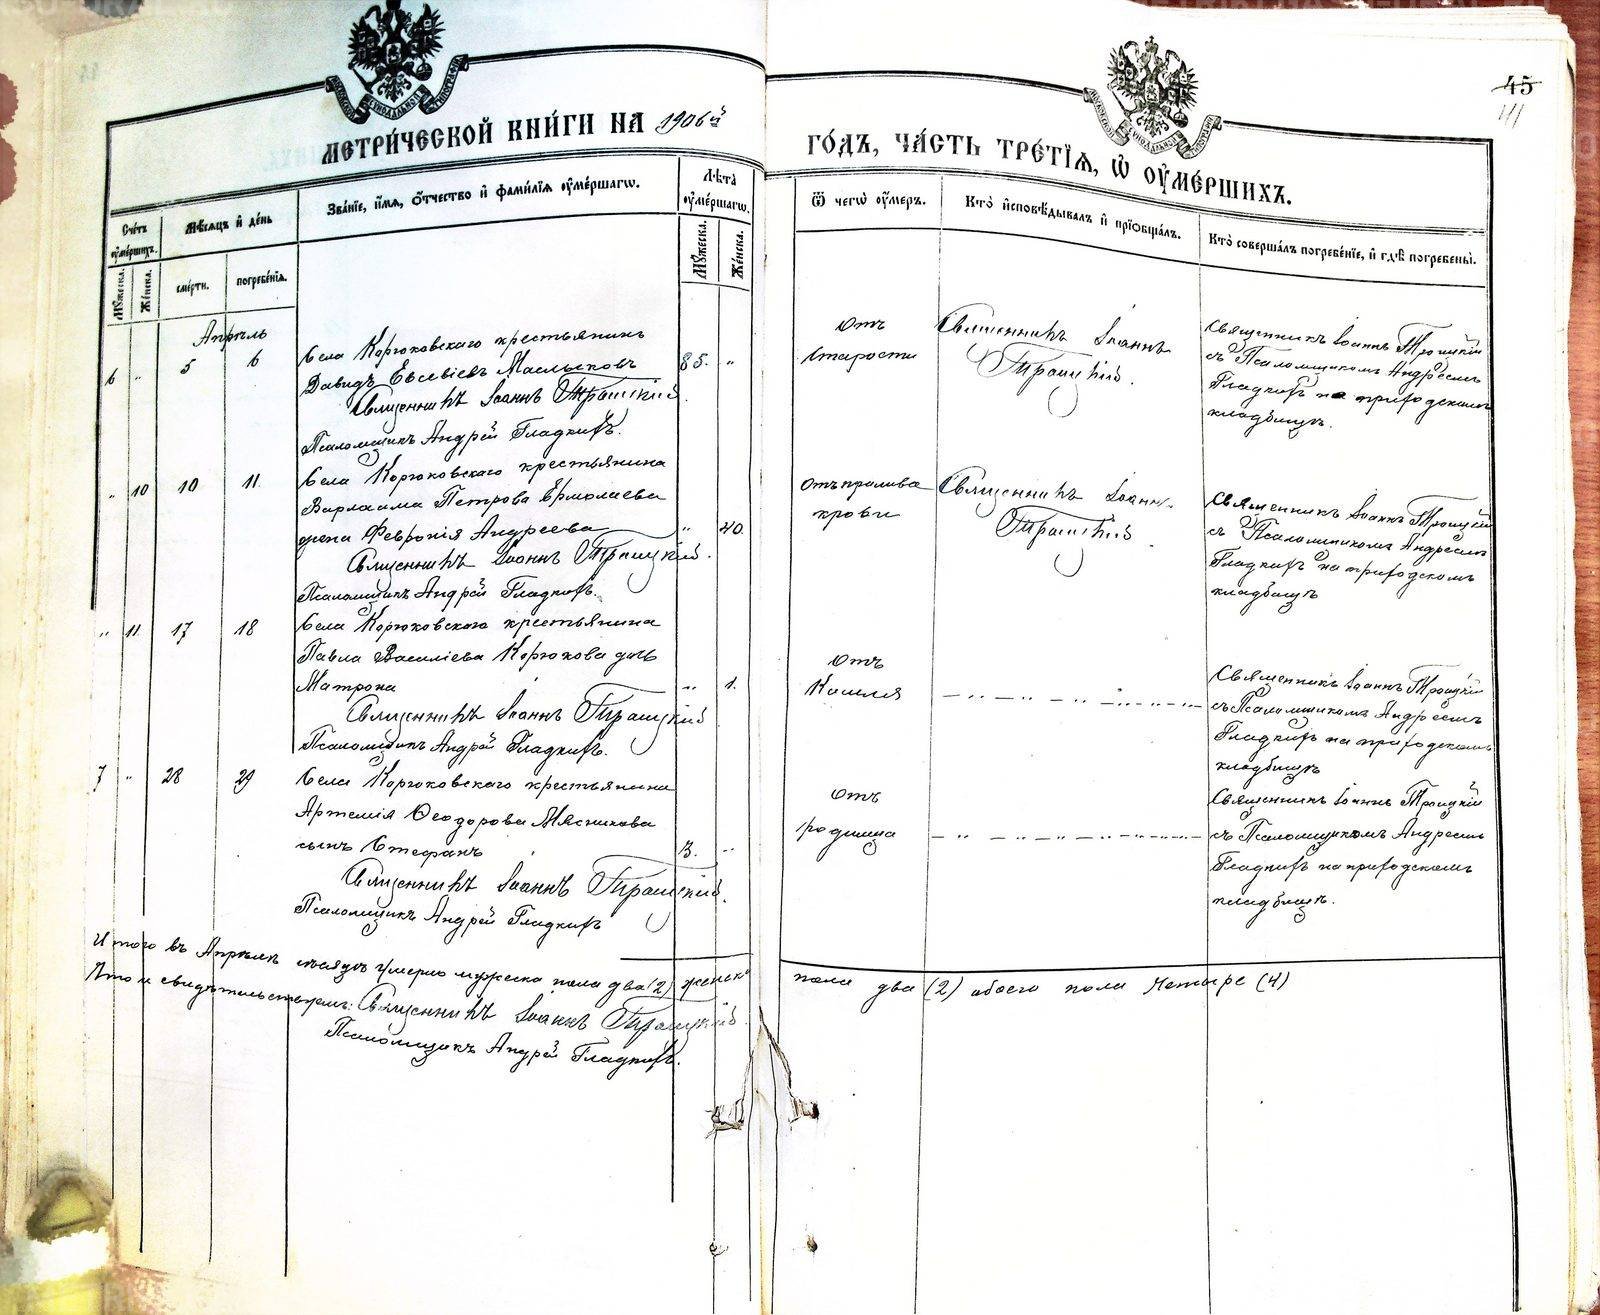 МЕТРИ́ЧЕСКОЙ КНИ́ГИ НА 1906й
ГО́ДЪ, ЧА́СТЬ ТРЕ́ТІЯ, Ѿ ОУМЕ́РШИХЪ.
45
111
Сче́тъ оуме́ршихъ.
Му́жеска.
Же́нска.
Мѣ́сяцъ и де́нь
сме́рти.
погребе́нія.
Зва́ніе, и́мя, о́тчество и фами́лія оуме́ршагѡ.
Лѣта̀ оуме́ршагѡ.
Му́жеска.
Же́нска.
Ѿ чегѡ̀ оу́меръ.
Кто̀ исповѣ́дывалъ и пріобща́лъ.
Кто̀ соверша́лъ погребе́ніе, и гдѣ̀ погребены̀.
Апрѣль
6 " 5 6
Села Корюковскаго крестьянинъ
Давидъ Евсевіевъ Маслыковъ
85. "
Священникъ Іоаннъ Троицкій
Псаломщикъ Андрей Гладкихъ.
Отъ
старости
Священникъ Іоаннъ
Троицкій.
Священникъ Іоаннъ Троицкій
съ Псаломщикомъ Андреемъ
Гладкихъ на приходскомъ
кладбищѣ.
" 10 10 11
Села Корюковскаго крестьянина
Варлаама Петрова Ермолаева
жена Февронія Андреева
" 40.
Священникъ Іоаннъ Троицкій.
Псаломщикъ Андрей Гладкихъ.
Отъ прилива
крови
Священникъ Іоаннъ
Троицкій
Священникъ Іоаннъ Троицкій
съ Псаломщикомъ Андреемъ
Гладкихъ на приходскомъ
кладбищѣ
" 11 17 18
Села Корюковскаго крестьянина
Павла Василіева Корюкова дочь
Матрона
" 1.
Священникъ Іоаннъ Троицкій
Псаломщикъ Андрей Гладкихъ.
Отъ
Кашля
Священникъ Іоаннъ Троицкій
съ Псаломщикомъ Андреемъ
Гладкихъ на приходскомъ
кладбищѣ
7 " 28 29
Села Корюковскаго крестьянина
Артемія Ѳеодорова Мясникова
сынъ Стефанъ
3. "
Священникъ Іоаннъ Троицкій.
Псаломщикъ Андрей Гладкихъ
Отъ
родимца
Священникъ Іоаннъ Троицкій
съ Псаломщикомъ Андреемъ
Гладкихъ на приходскомъ
кладбищѣ.
Итого въ Апрѣлѣ мѣсяцѣ умерло мужеска пола два (2) женск.
пола два (2) обоего пола четыре (4)
Что и свидѣтельствуемъ: Священникъ Іоаннъ Троицкій.
Псаломщикъ Андрей Гладкихъ.